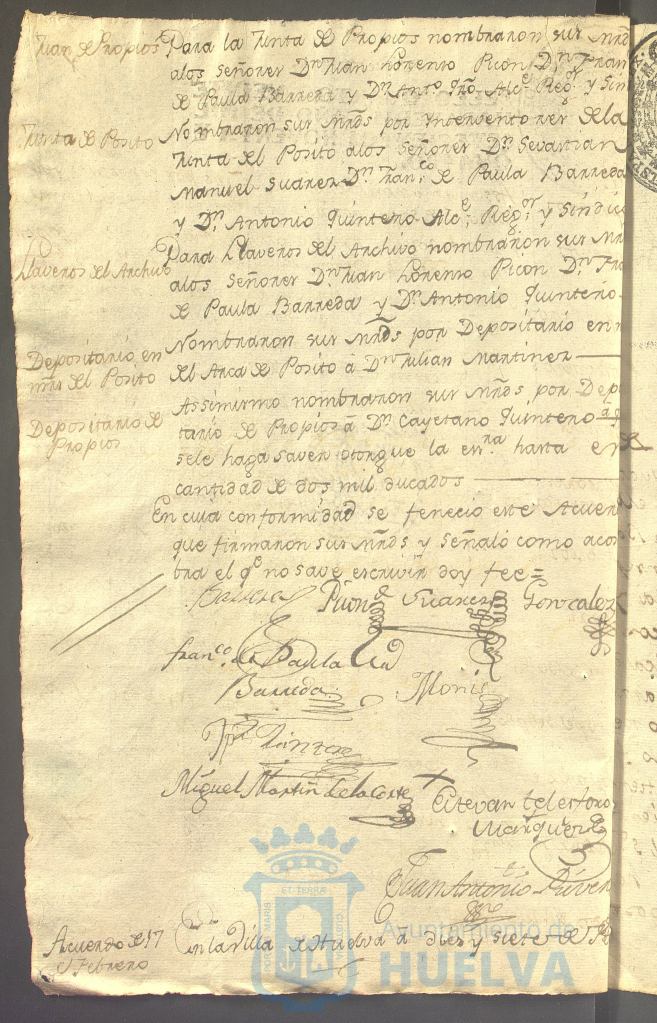 Junta de Propios
Para la Junta de Propios nombraron sus Mrds
alos Señores Dn. Juan Lorenzo Picon Dn. Fran
de Paula Barreda y Dn. Anto. Qno. Alce. Regor. y Sin
Junta de Posito
Nombraron sus Mrds por Ynterventores de la
Junta del Posito alos Señores Dn. Sevastian
Manuel Suarez Dn. Franco. de Paula Barreda
y Dn. Antonio Quintero Alce. Regor. y Sindico
Llaveros del Archivo
Para Llaveros del Archivo nombraron sus Mr
alos Señores Dn. Juan Lorenzo Picon Dn. Fra
de Paula Barreda y Dn. Antonio Quintero
Depositario en
mrs del Posito
Nombraron sus Mrds por Depositario en
del Arca de Posito á Dn. Julian Martinez
Depositario de
Propios
Assimismo nombraron sus Mrds por Depo
tario de Propios á Dn. Cayetano Quintero
sele haga saver otorgue la esra. hasta en
cantidad de dos mil ducados
En cuia conformidad se fenecio este Acuer
que firmaron sus Mrds y señaló como acos
bra el qe. no save escrivir doy fee=
Picon Suarez Gonzalez
Franco. de Paula
Barreda
Monis
Quintero
Miguel Martin de la Corte
+
Estevan
Marquez
Juan Antonio
Acuerdo de 17
de Febrero
En la Villa de Huelva á diez y siete de
ET TERRÆ
Ayuntamiento de
HUELVA